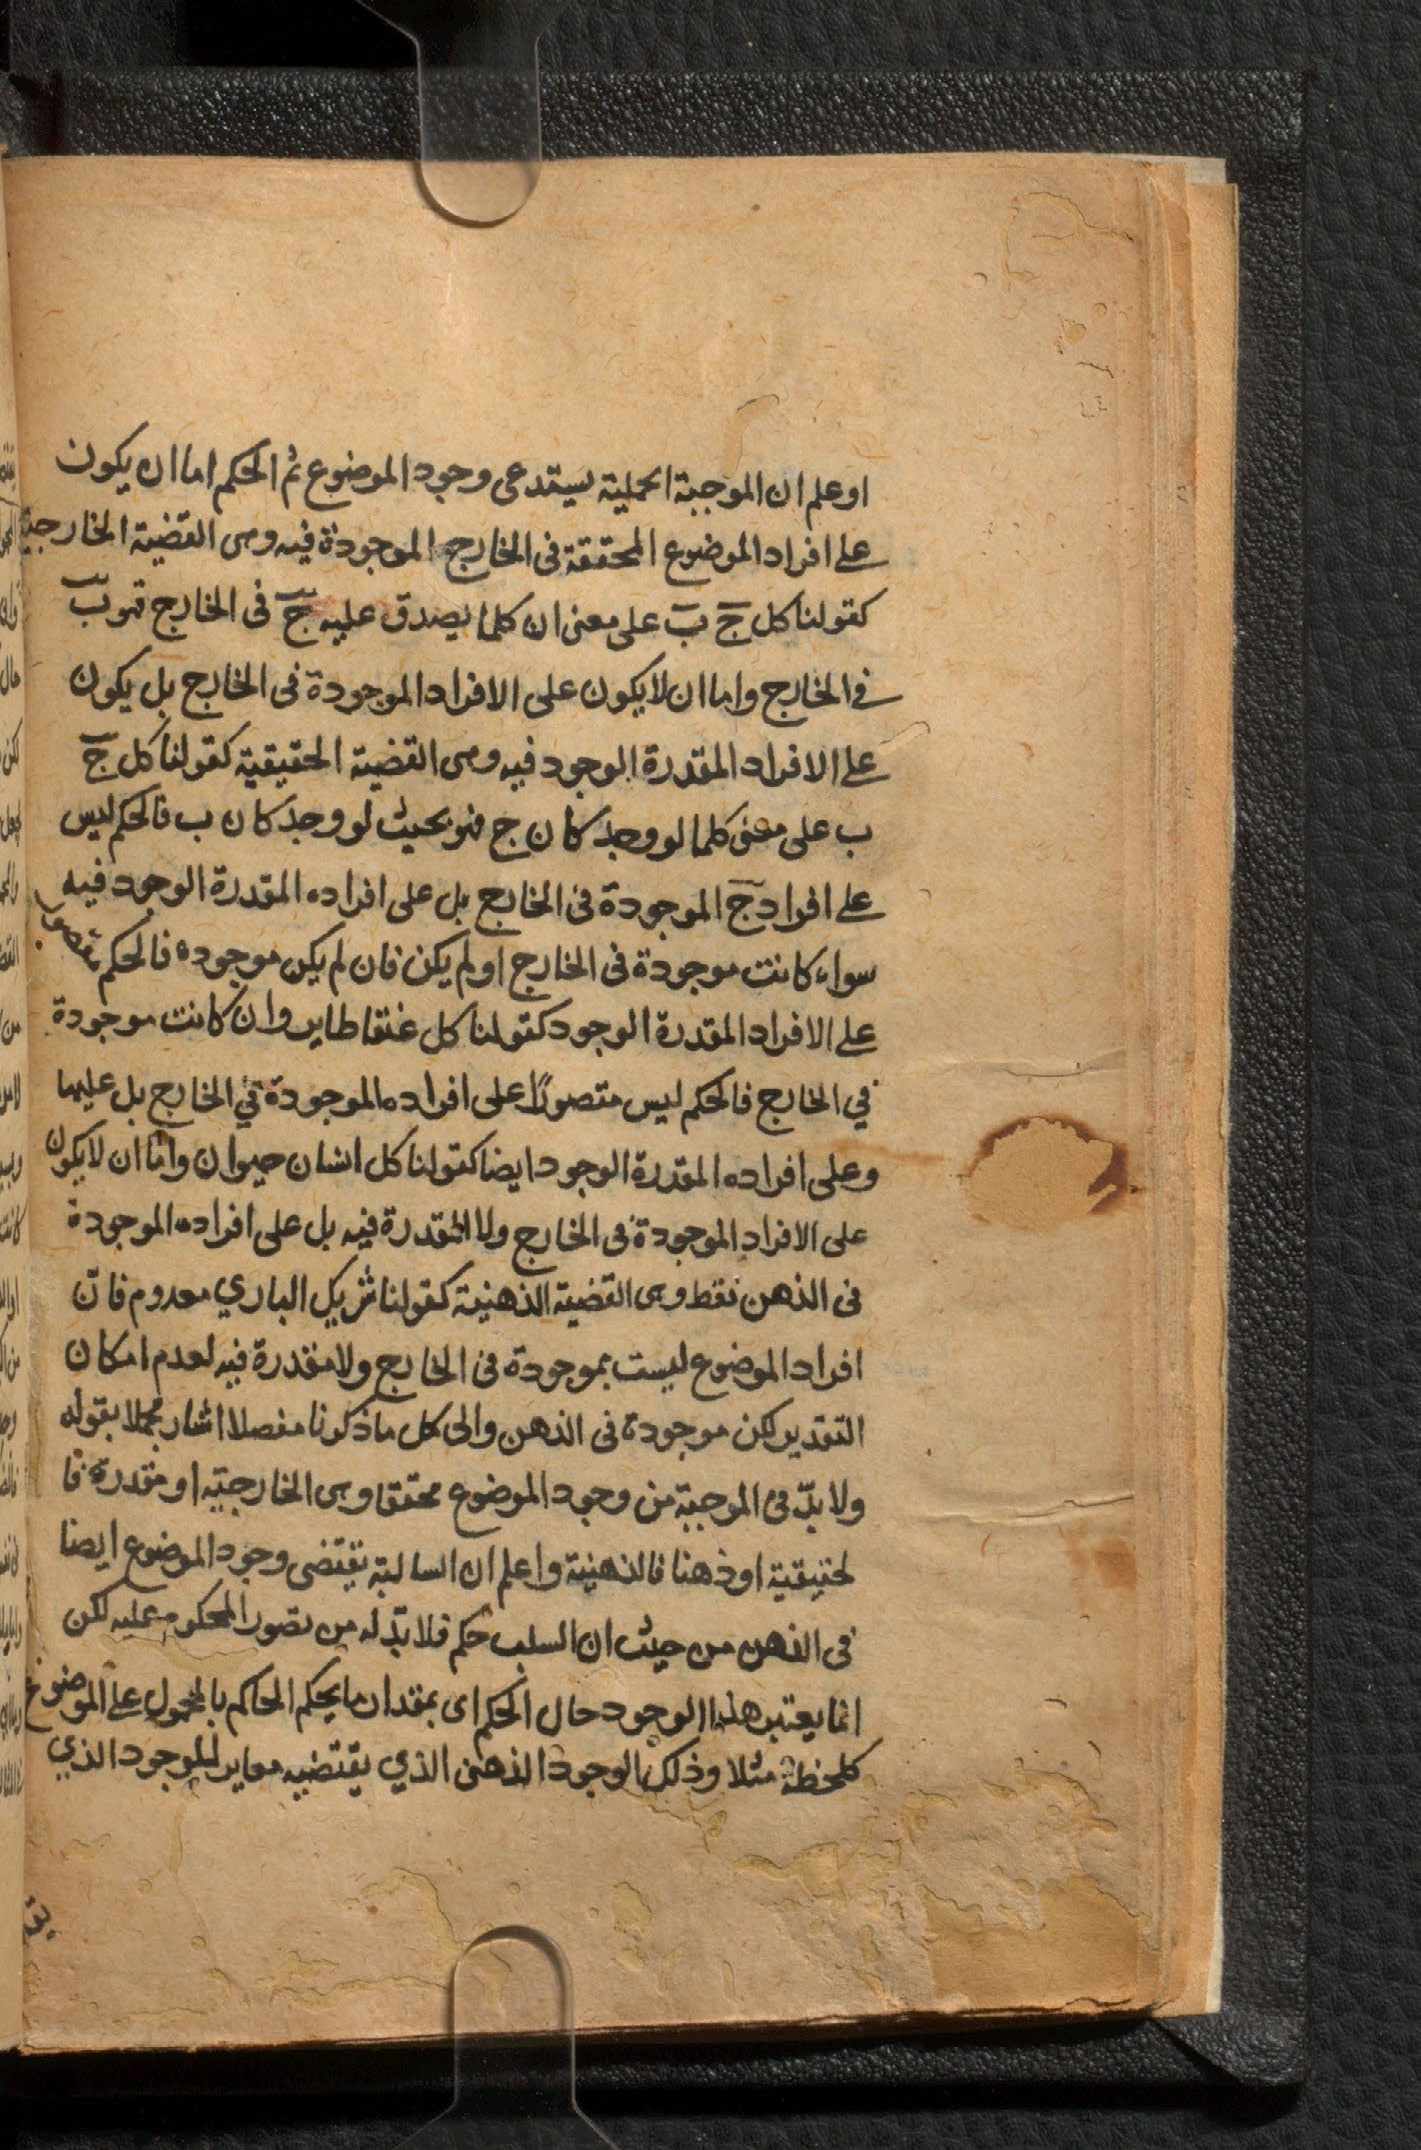 اوعلم ان الموجبة الحملية يستدعى وجود الموضوع ثم الحكم اما ان يكون
على افراد الموضوع المحققة فى الخارج الموجودة فيه وهى القضية الخارجية
كقولنا كل ج ب على معنى ان كلما يصدق عليه ج فى الخارج فهو ب
فى الخارج واما ان لا يكون على الافراد الموجودة فى الخارج بل يكون
على الافراد المقدرة الوجود فيه وهى القضية الحقيقية كقولنا كل ج
ب على معنى كلما لو وجد كان ج فهو بحيث لو وجد كان ب فالحكم ليس
على افراد ج الموجودة فى الخارج بل على افراده المقدرة الوجود فيه
سواء كانت موجودة فى الخارج او لم يكن فان لم يكن موجودة فالحكم مقصور
على الافراد المقدرة الوجود كقولنا كل عنقا طاير وان كانت موجودة
في الخارج فالحكم ليس مقصورًا على افراده الموجودة في الخارج بل عليها
وعلى افراده المقدرة الوجود ايضا كقولنا كل انسان حيوان واما ان لا يكون
على الافراد الموجودة فى الخارج ولا المقدرة فيه بل على افراده الموجودة
فى الذهن فقط وهى القضية الذهنية كقولنا شريك الباري معدوم فانّ
افراد الموضوع ليست بموجودة فى الخارج ولا مقدرة فيه لعدم امكان
التقدير لكن موجودة فى الذهن والى كل ما ذكرنا مفصلا اشار مجملا بقوله
ولا بدّ فى الموجبة من وجود الموضوع محققا وهى الخارجيّة او مقدرة فا
لحقيقية او ذهنا فالذهنية واعلم ان السالبة يقتضى وجود الموضوع ايضا
فى الذهن من حيث ان السلب حكم فلا بدّ له من تصور المحكوم عليه لكن
انما يعتبر هذا الوجود حال الحكم اى بمقدار ما يحكم الحاكم بالمحمول على الموضوع
كلحظة مثلا وذلك الوجود الذهنى الذي يقتضيه مغاير للوجود الذي